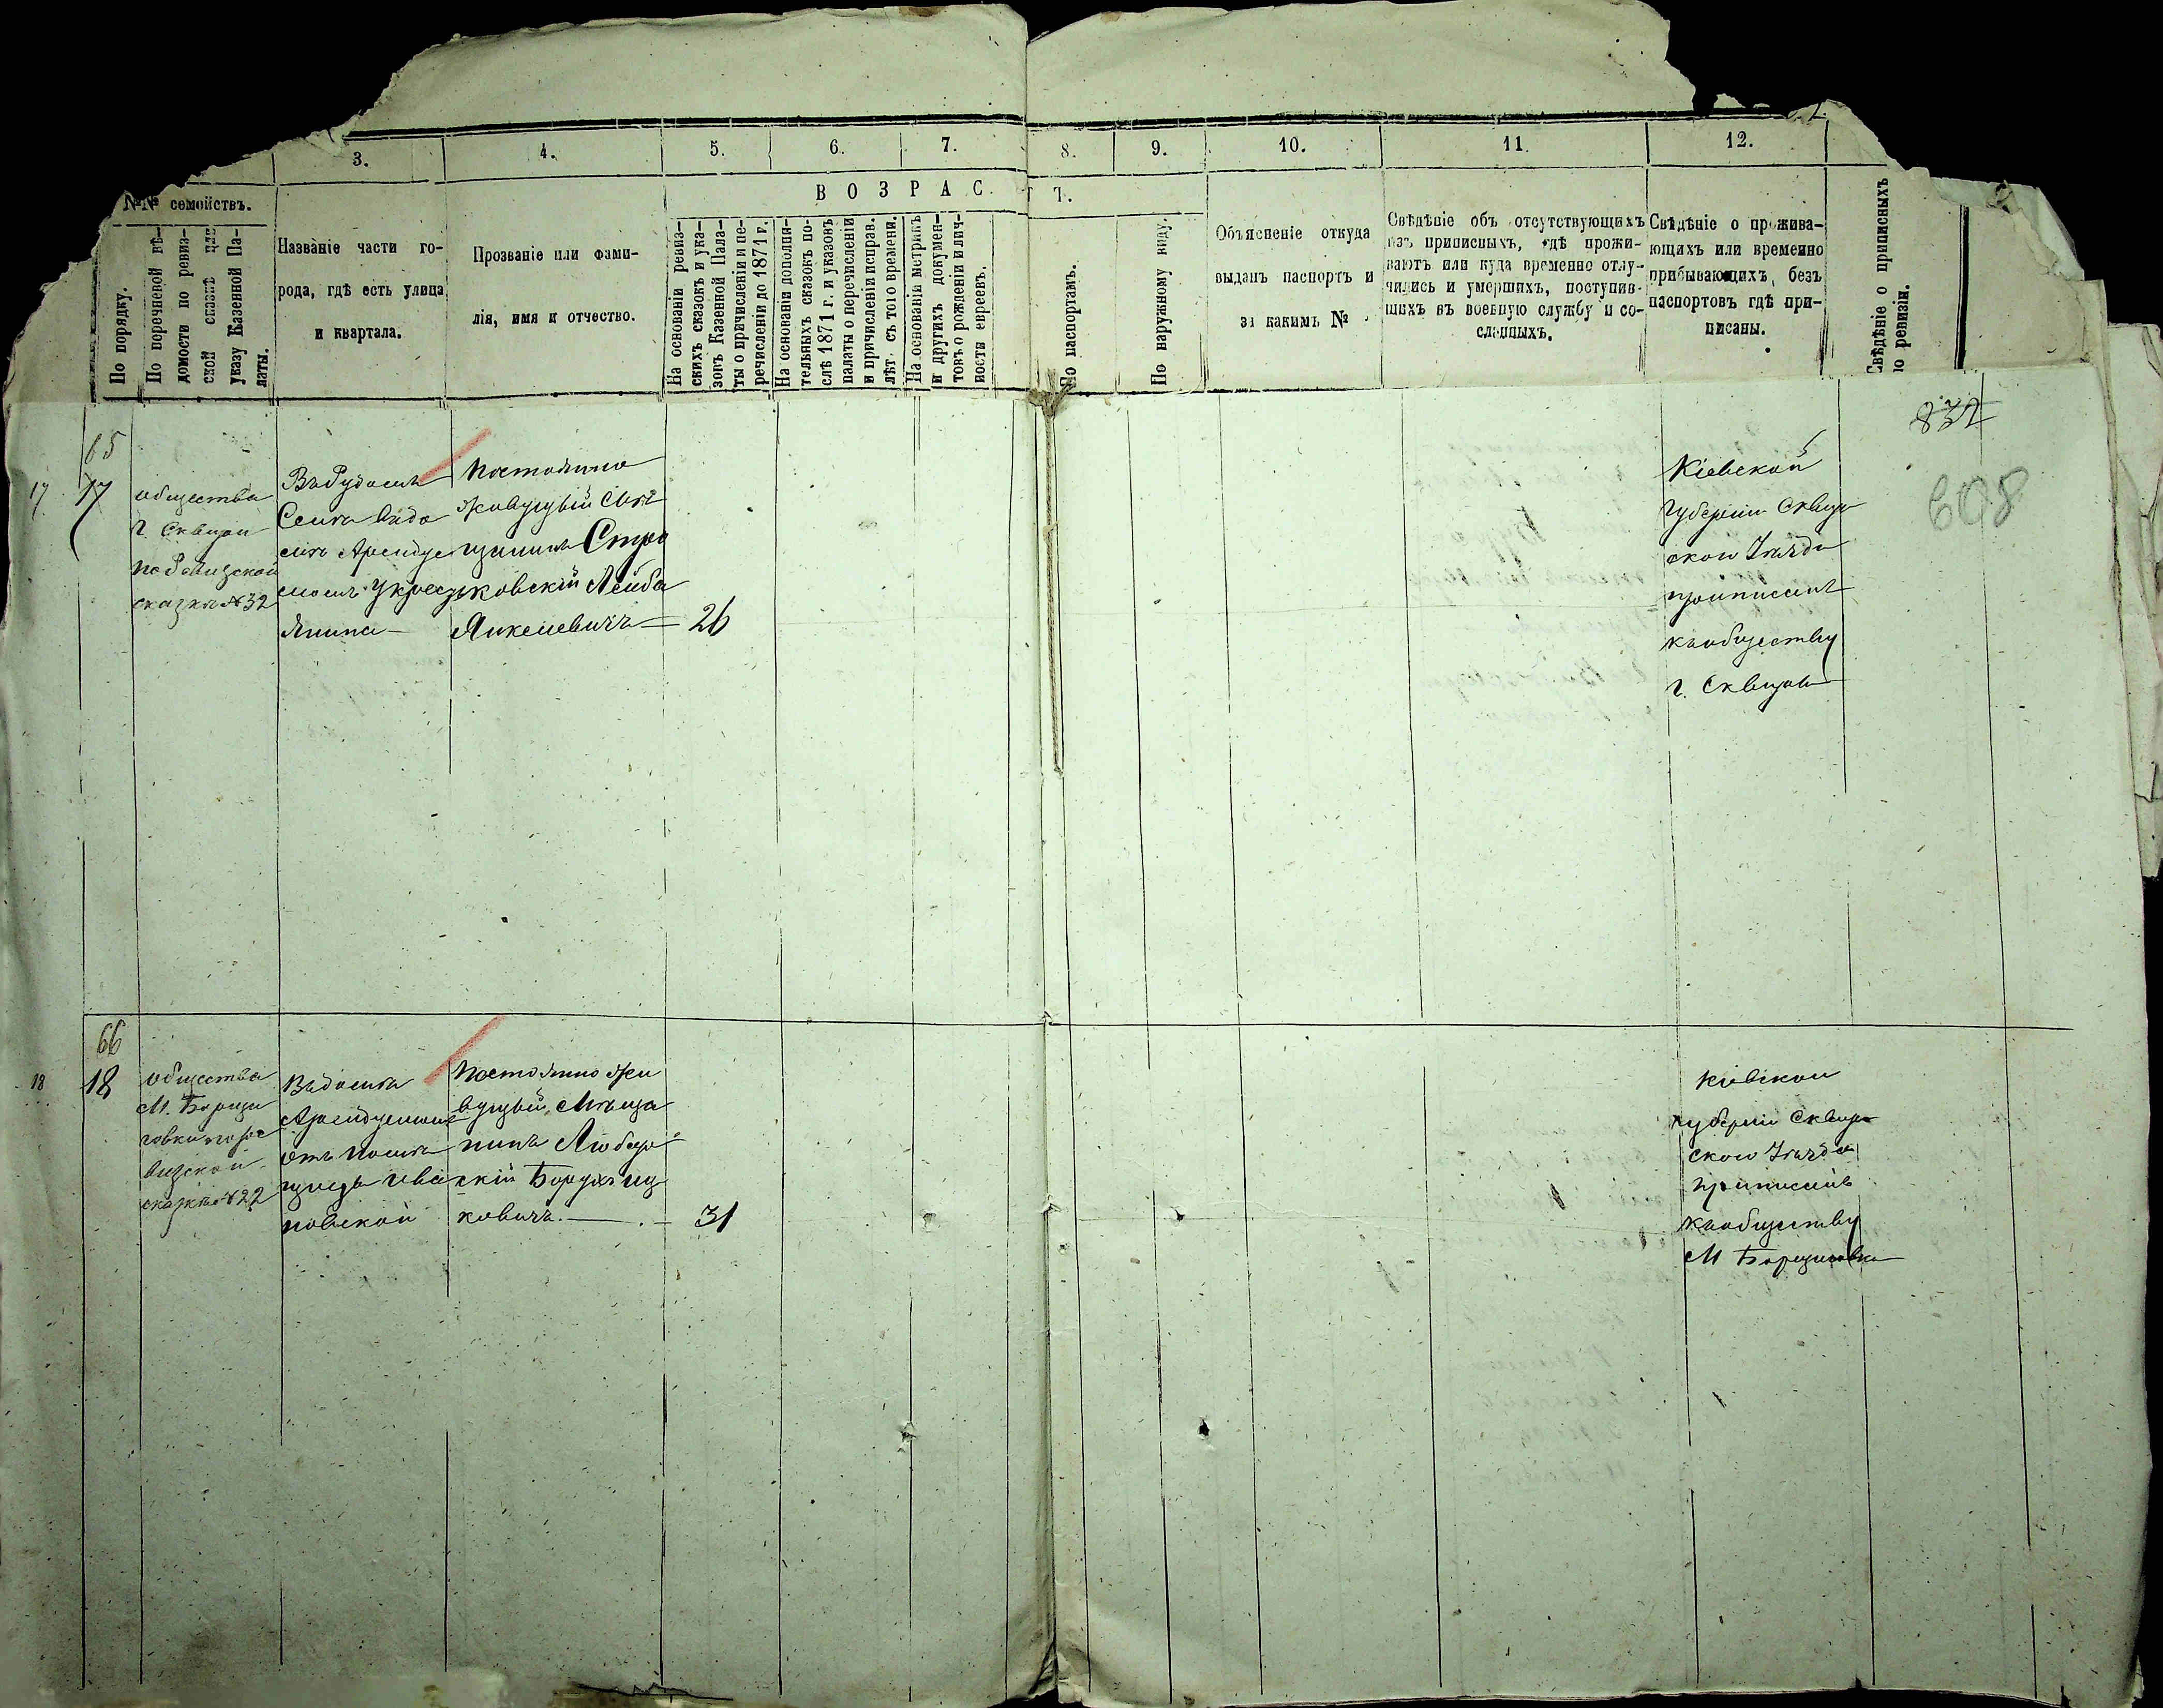 3.
4.
5.
6.
7.
8.
9.
10.
11.
12.
№№ семействъ.
ВОЗРАСТ.
По порядку.
По перечневой вѣ-
домости по ревиз-
ской сказкѣ или
указу Казенной Па-
латы.
Названіе части го-
рода, гдѣ есть улица
и квартала.
Прозваніе или фами-
лія, имя и отчество.
На основаніи ревиз-
скихъ сказокъ и ука-
зовъ Казенной Пала-
ты о причисленіи и пе-
речисленіи до 1871 г.
На основаніи дополни-
тельныхъ сказокъ по-
слѣ 1871 г. и указовъ
палаты о перечисленіи
и причисленіи исправ.
лѣт. съ того времени.
На основаніи метрикъ
и другихъ докумен-
товъ о рожденіи и лич-
ности евреевъ.
По паспортамъ.
По наружному виду.
Объясненіе откуда
выданъ паспортъ и
за какимъ №
Свѣдѣніе объ отсутствующихъ
изъ приписныхъ, гдѣ прожи-
ваютъ или куда временно отлу-
чились и умершихъ, поступив-
шихъ въ военную службу и со-
сланныхъ.
Свѣдѣніе о прожива-
ющихъ или временно
прибывающихъ, безъ
паспортовъ гдѣ при-
писаны.
Свѣдѣніе о приписныхъ
по ревизіи.
832
608
65
17
17
общества
г. Сквыри
по ревизской
сказкѣ №32
Селѣ
Постоянно
живущый Мѣ
щанинъ Стри
жковскій Лейба
Янкелевичъ — 26
Кіевской
Губерніи Сквыр
ской Уѣзда
приписанъ
къ обществу
г. Сквыры
66
18
18
общества
М. Борща
говки по ре
визской
сказкѣ №22
Постоянно жи
вущый Мѣща
нинъ Любар
скій Борухъ Иц
ковичъ. — 31
Кіевской
губерніи Сквыр
ской Уѣзда
приписанъ
къ обществу
М Борщаговки